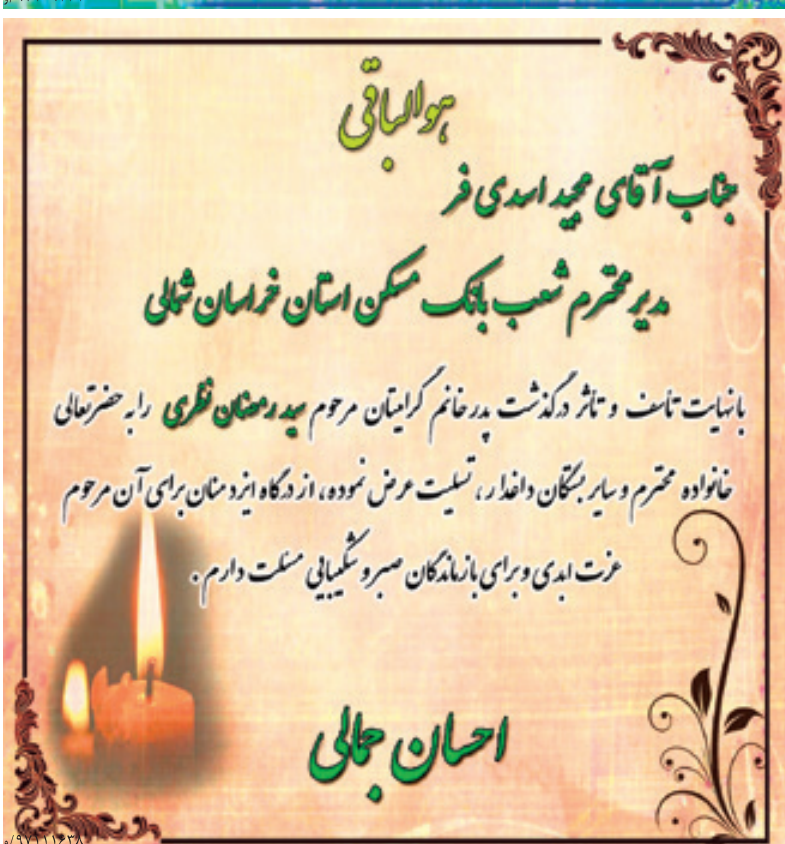 هوالباقی
جناب آقای مجید اسدی فر
مدیر محترم شعب بانک مسکن استان خراسان شمالی
بانهایت تأسف و تاثر درگذشت پدر خانم گرامیتان مرحوم سید رمضان نظری را به حضرتعالی
خانواده محترم و سایر بستگان داغدار ، تسلیت عرض نموده ، از درگاه ایزد منان برای آن مرحوم
عزت ابدی و برای بازماندگان صبر و شکیبایی مسئلت دارم .
احسان جمالی
۹۷۱۱۱۶۳۸/و